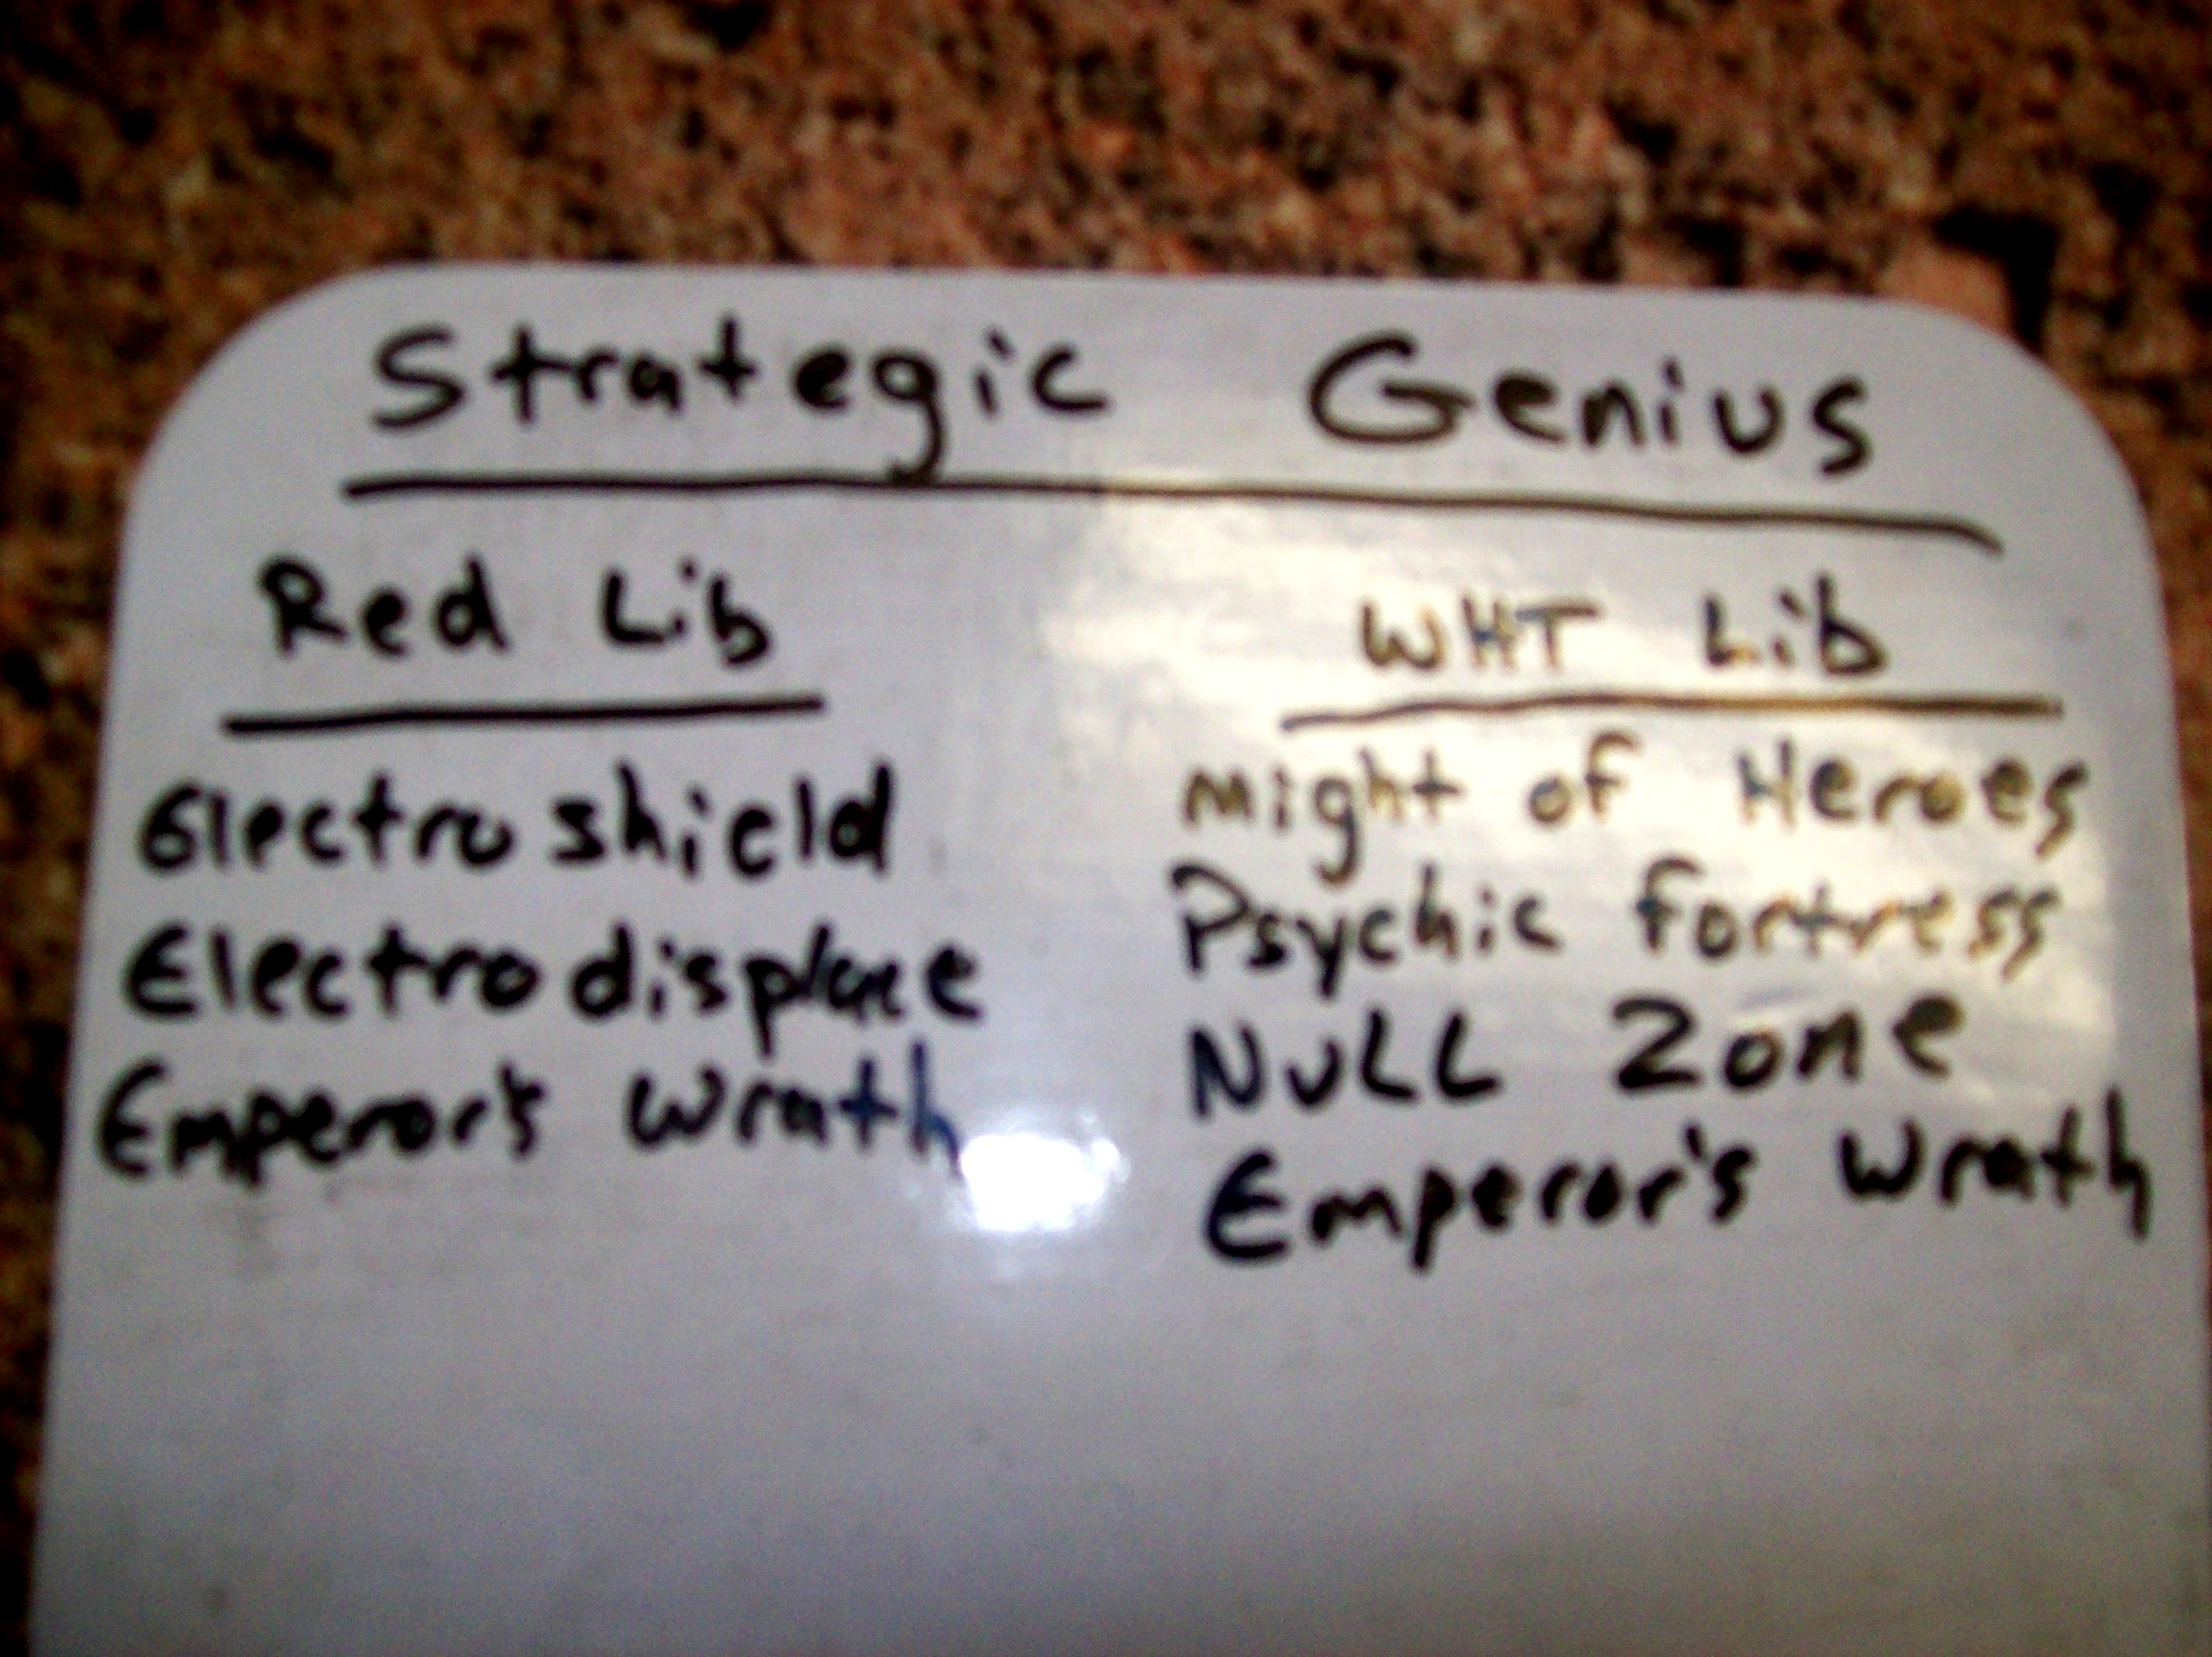 Strategic Genius
Red Lib
Electro shield
Electro displace
Emperor's Wrath
WHT Lib
Might of Heroes
Psychic Fortress
NULL Zone
Emperor's Wrath